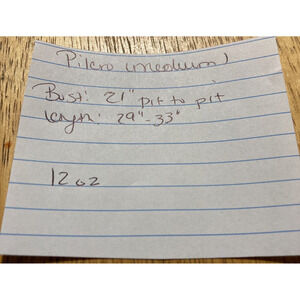 (medium)
Bust: 21" pit to pit
Length: 29"-33"
12 oz